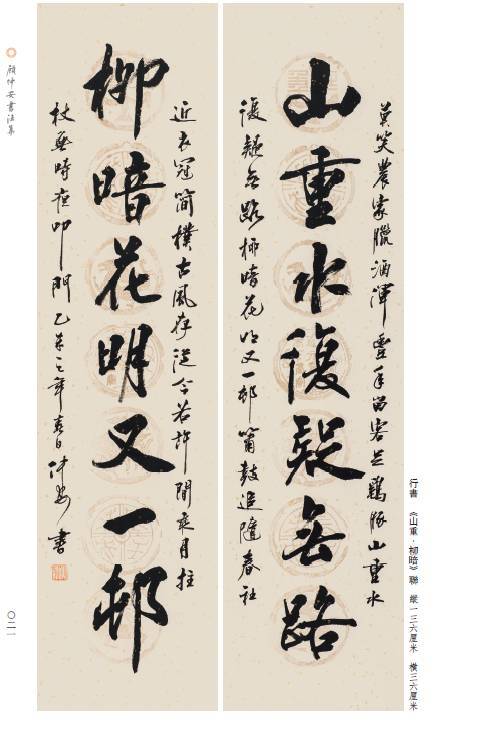 行書 《山重·柳暗》聯 縱一三六厘米 橫三六厘米
莫笑農家臘酒渾豐年留客足鷄豚山重水
山重水復疑無路
復疑無路柳暗花明又一邨簫鼓追隨春社
近衣冠簡樸古風存從今若許閒乘月拄
柳暗花明又一邨
杖無時夜叩門 乙未之年春日仲安書
顧仲安書法集
〇二一